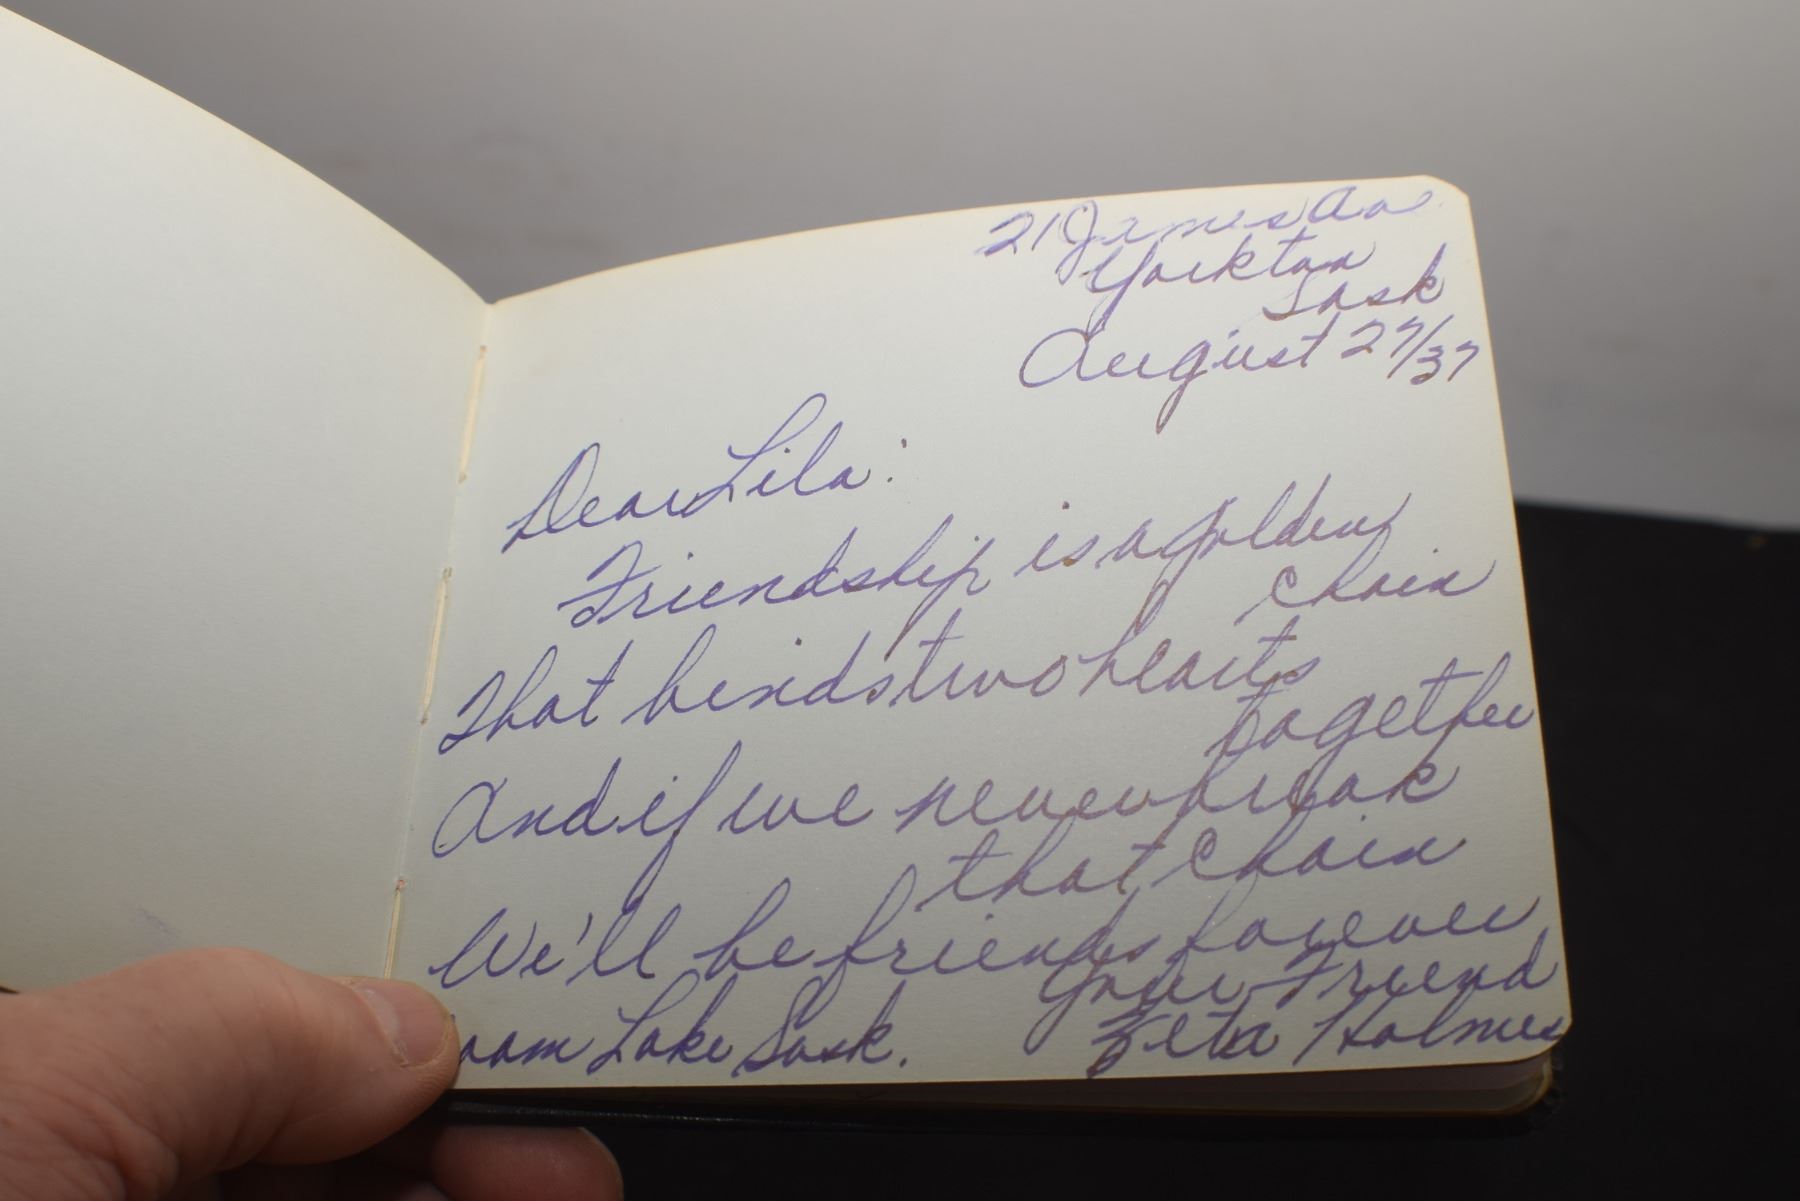 21 James Ave
Yorkton
Sask
August 27/37
Dear Lila:
Friendship is a golden
chain
That binds two hearts
together
And if we never break
that chain
We'll be friends forever
Your Friend
Zeta Holmes
Lake Sask.